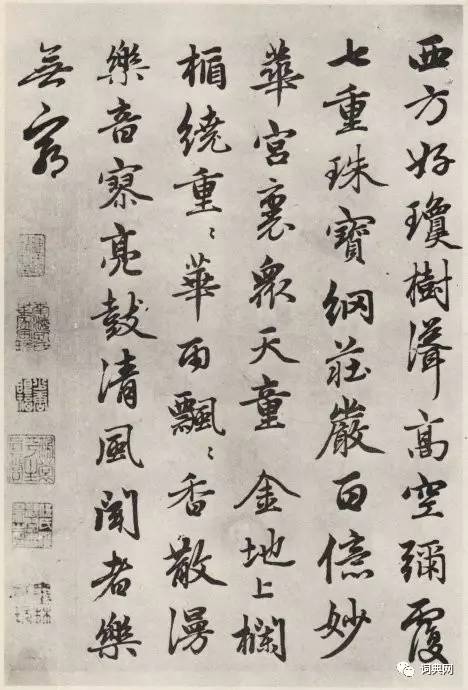 西方好瓊樹聳高空彌覆
七重珠寶綱莊嚴百億妙
華宮裏衆天童 金地上欄
楯繞重〻華雨飄〻香散漫
樂音寮亮鼓清風聞者樂
無窮
词典网